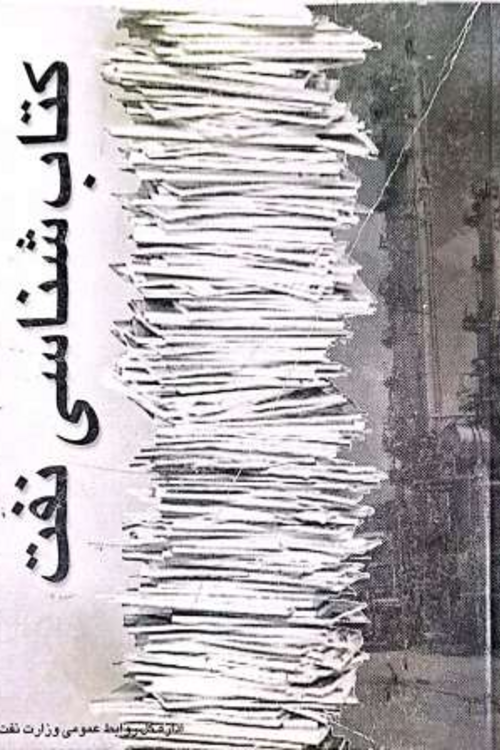 کتاب‌شناسی نفت
اداره‌کل روابط عمومی وزارت نفت